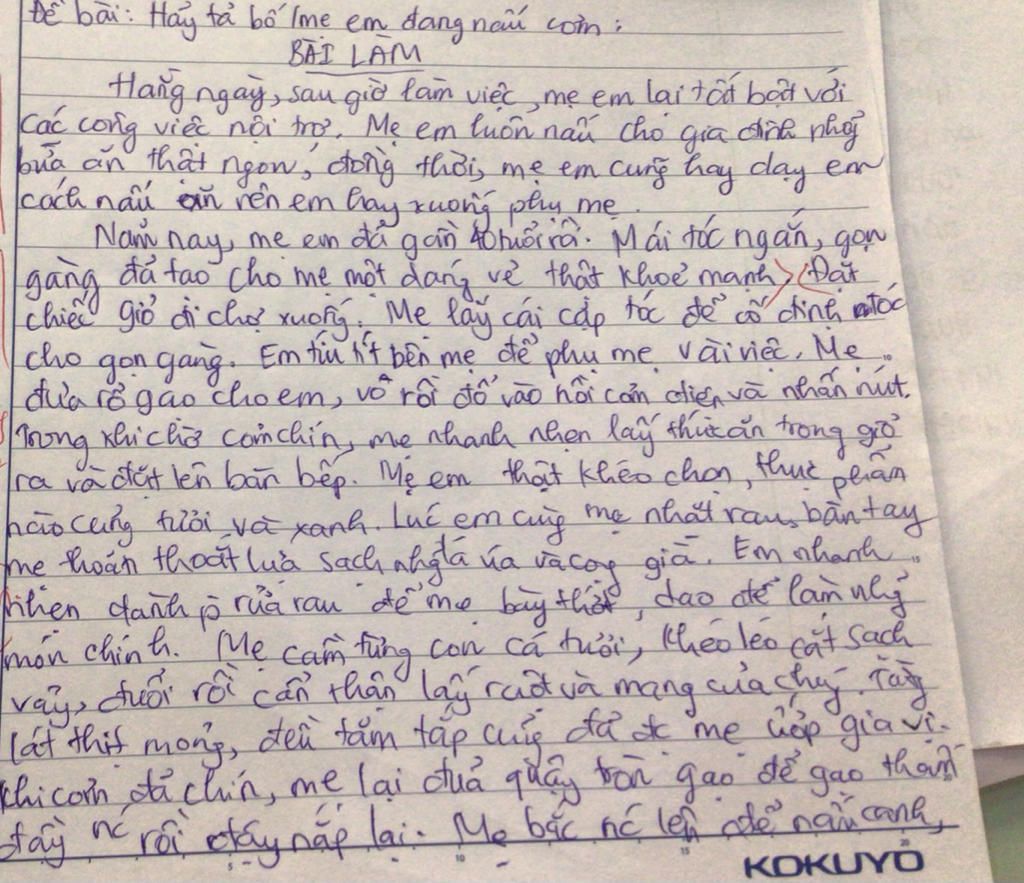 Đề bài: Hãy tả bố/mẹ em đang nấu cơm:
BÀI LÀM
Hằng ngày, sau giờ làm việc, mẹ em lại tất bật với
các công việc nội trợ. Mẹ em luôn nấu cho gia đình những
bữa ăn thật ngon, đồng thời, mẹ em cũng hay dạy em
cách nấu ăn nên em hay xuống phụ mẹ.
Năm nay, mẹ em đã gần 40 tuổi rồi. Mái tóc ngắn, gọn
gàng đã tạo cho mẹ một dáng vẻ thật khoẻ mạnh. Đặt
chiếc giỏ đi chợ xuống. Mẹ lấy cái cặp tóc để cố định tóc
cho gọn gàng. Em tíu tít bên mẹ để phụ mẹ vài việc. Mẹ
đưa rổ gạo cho em, vo rồi đổ vào nồi cơm điện và nhấn nút.
Trong khi chờ cơm chín, mẹ nhanh nhẹn lấy thức ăn trong giỏ
ra và đặt lên bàn bếp. Mẹ em thật khéo chọn, thực phẩm
nào cũng tươi và xanh. Lúc em cùng mẹ nhặt rau, bàn tay
mẹ thoăn thoắt lựa sạch những lá úa và cọng già. Em nhanh
nhẹn dành rửa rau để mẹ bày thớt, dao để làm những
món chính. Mẹ cầm từng con cá tươi, khéo léo cắt sạch
vảy, đuôi rồi cẩn thận lấy ruột và mang của chúng. Từng
lát thịt mỏng, đều tăm tắp cũng đã đc mẹ ướp gia vị.
Khi cơm đã chín, mẹ lại đũa quậy tròn gạo để gạo thấm
đầy nc rồi đậy nắp lại. Mẹ bắc nc lên để nấu canh,
KOKUYO
5 10 15 20